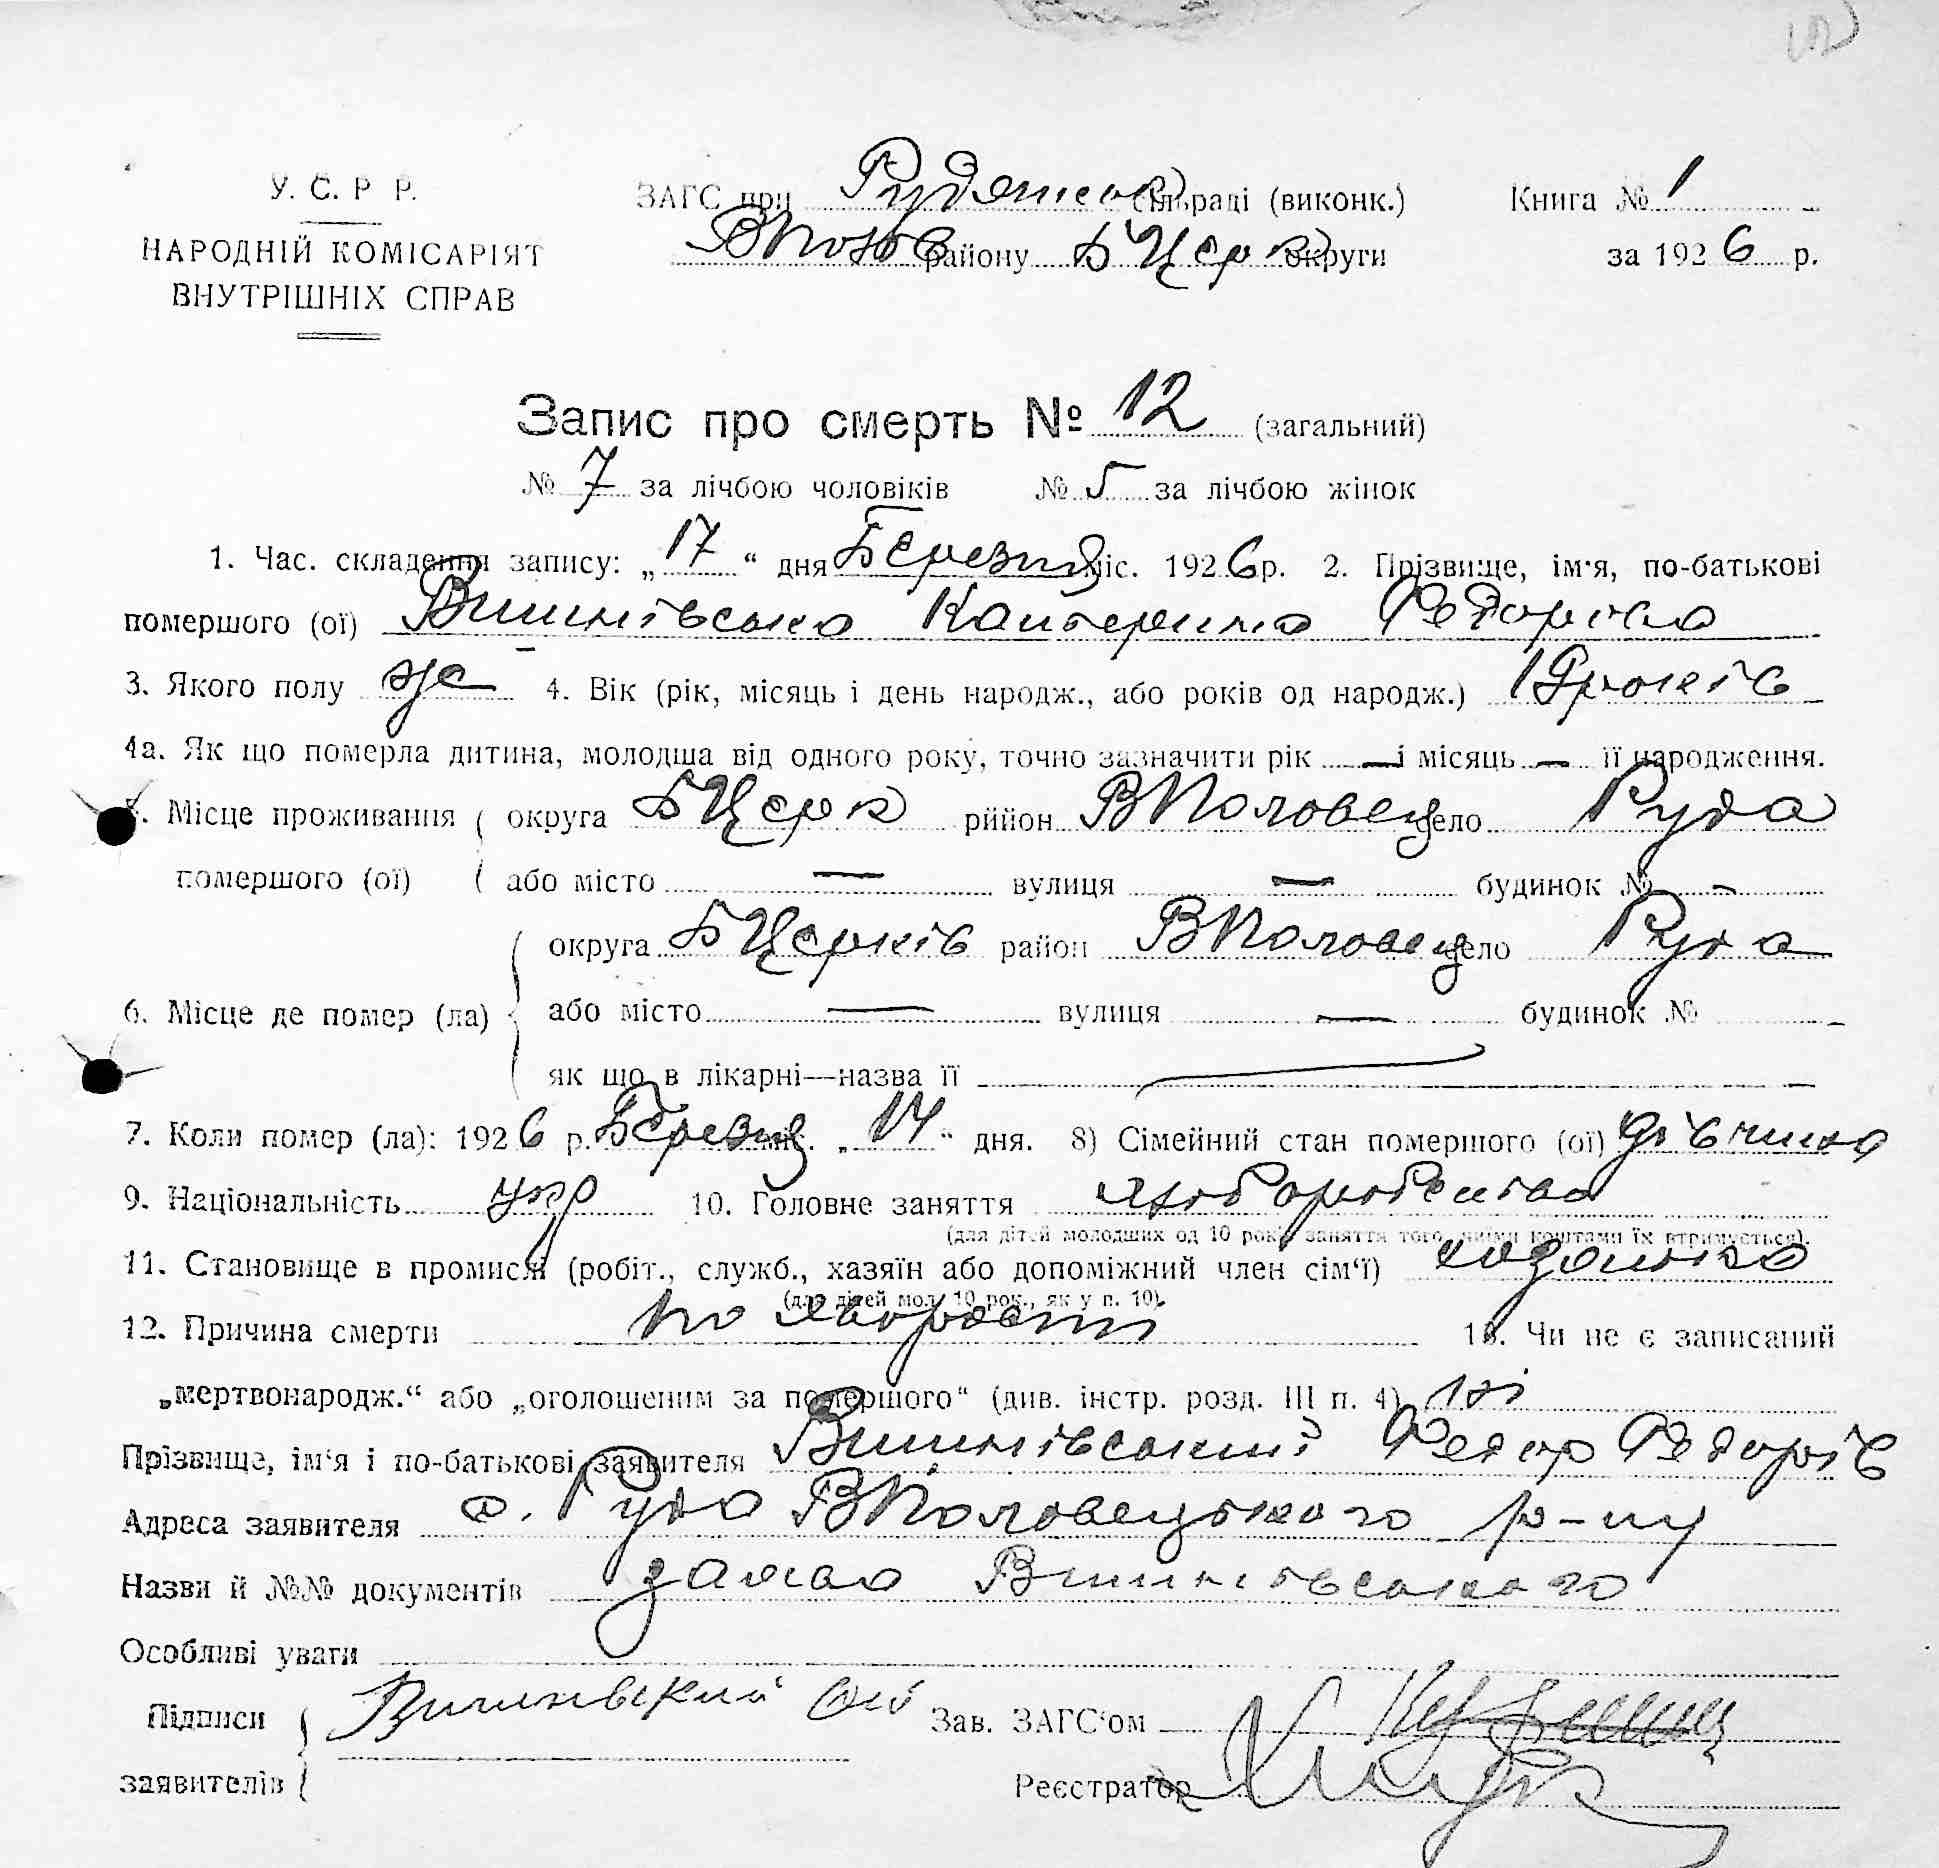 У. С. Р Р.
НАРОДНІЙ КОМІСАРІЯТ
ВНУТРІШНІХ СПРАВ
ЗАГС при Рудянськ сільраді (виконк.) Книга № 1
району Б Церк округи за 1926 р.
Запис про смерть № 12 (загальний)
№ 7 за лічбою чоловіків № 5 за лічбою жінок
1. Час. складення запису: „17“ дня Березня міс. 1926 р. 2. Прізвище, ім'я, по-батькові
помершого (ої) Вишнівська Катерина Федорівна
3. Якого полу же 4. Вік (рік, місяць і день народж., або років од народж.) років
4а. Як що померла дитина, молодша від одного року, точно зазначити рік — і місяць — її народження.
5. Місце проживання округа Б Церк рийон ВПоловец село Руда
помершого (ої) або місто — вулиця — будинок № -
округа Б Церків район ВПоловец село Руда
6. Місце де помер (ла) або місто — вулиця — будинок №
як що в лікарні—назва її
7. Коли помер (ла): 1926 р. Березня міс. „14“ дня. 8) Сімейний стан помершого (ої) дівчина
9. Національність укр 10. Головне заняття хліборобство
(для дітей молодших од 10 рок., заняття того, чиїми коштами їх втримується).
11. Становище в промислі (робіт., служб., хазяїн або допоміжний член сім'ї)
(для дітей мол. 10 рок., як у п. 10).
12. Причина смерти по хворости 13. Чи не є записаний
„мертвонародж.“ або „оголошеним за помершого“ (див. інстр. розд. III п. 4) ні
Прізвище, ім'я і по-батькові заявителя Вишнівський Федор Федорів
Адреса заявителя с. Руда ВПоловецького р-ну
Назви й №№ документів заява Вишнівського
Особливі уваги
Підписи Вишнівский Зав. ЗАГС'ом
заявителів Реєстратор